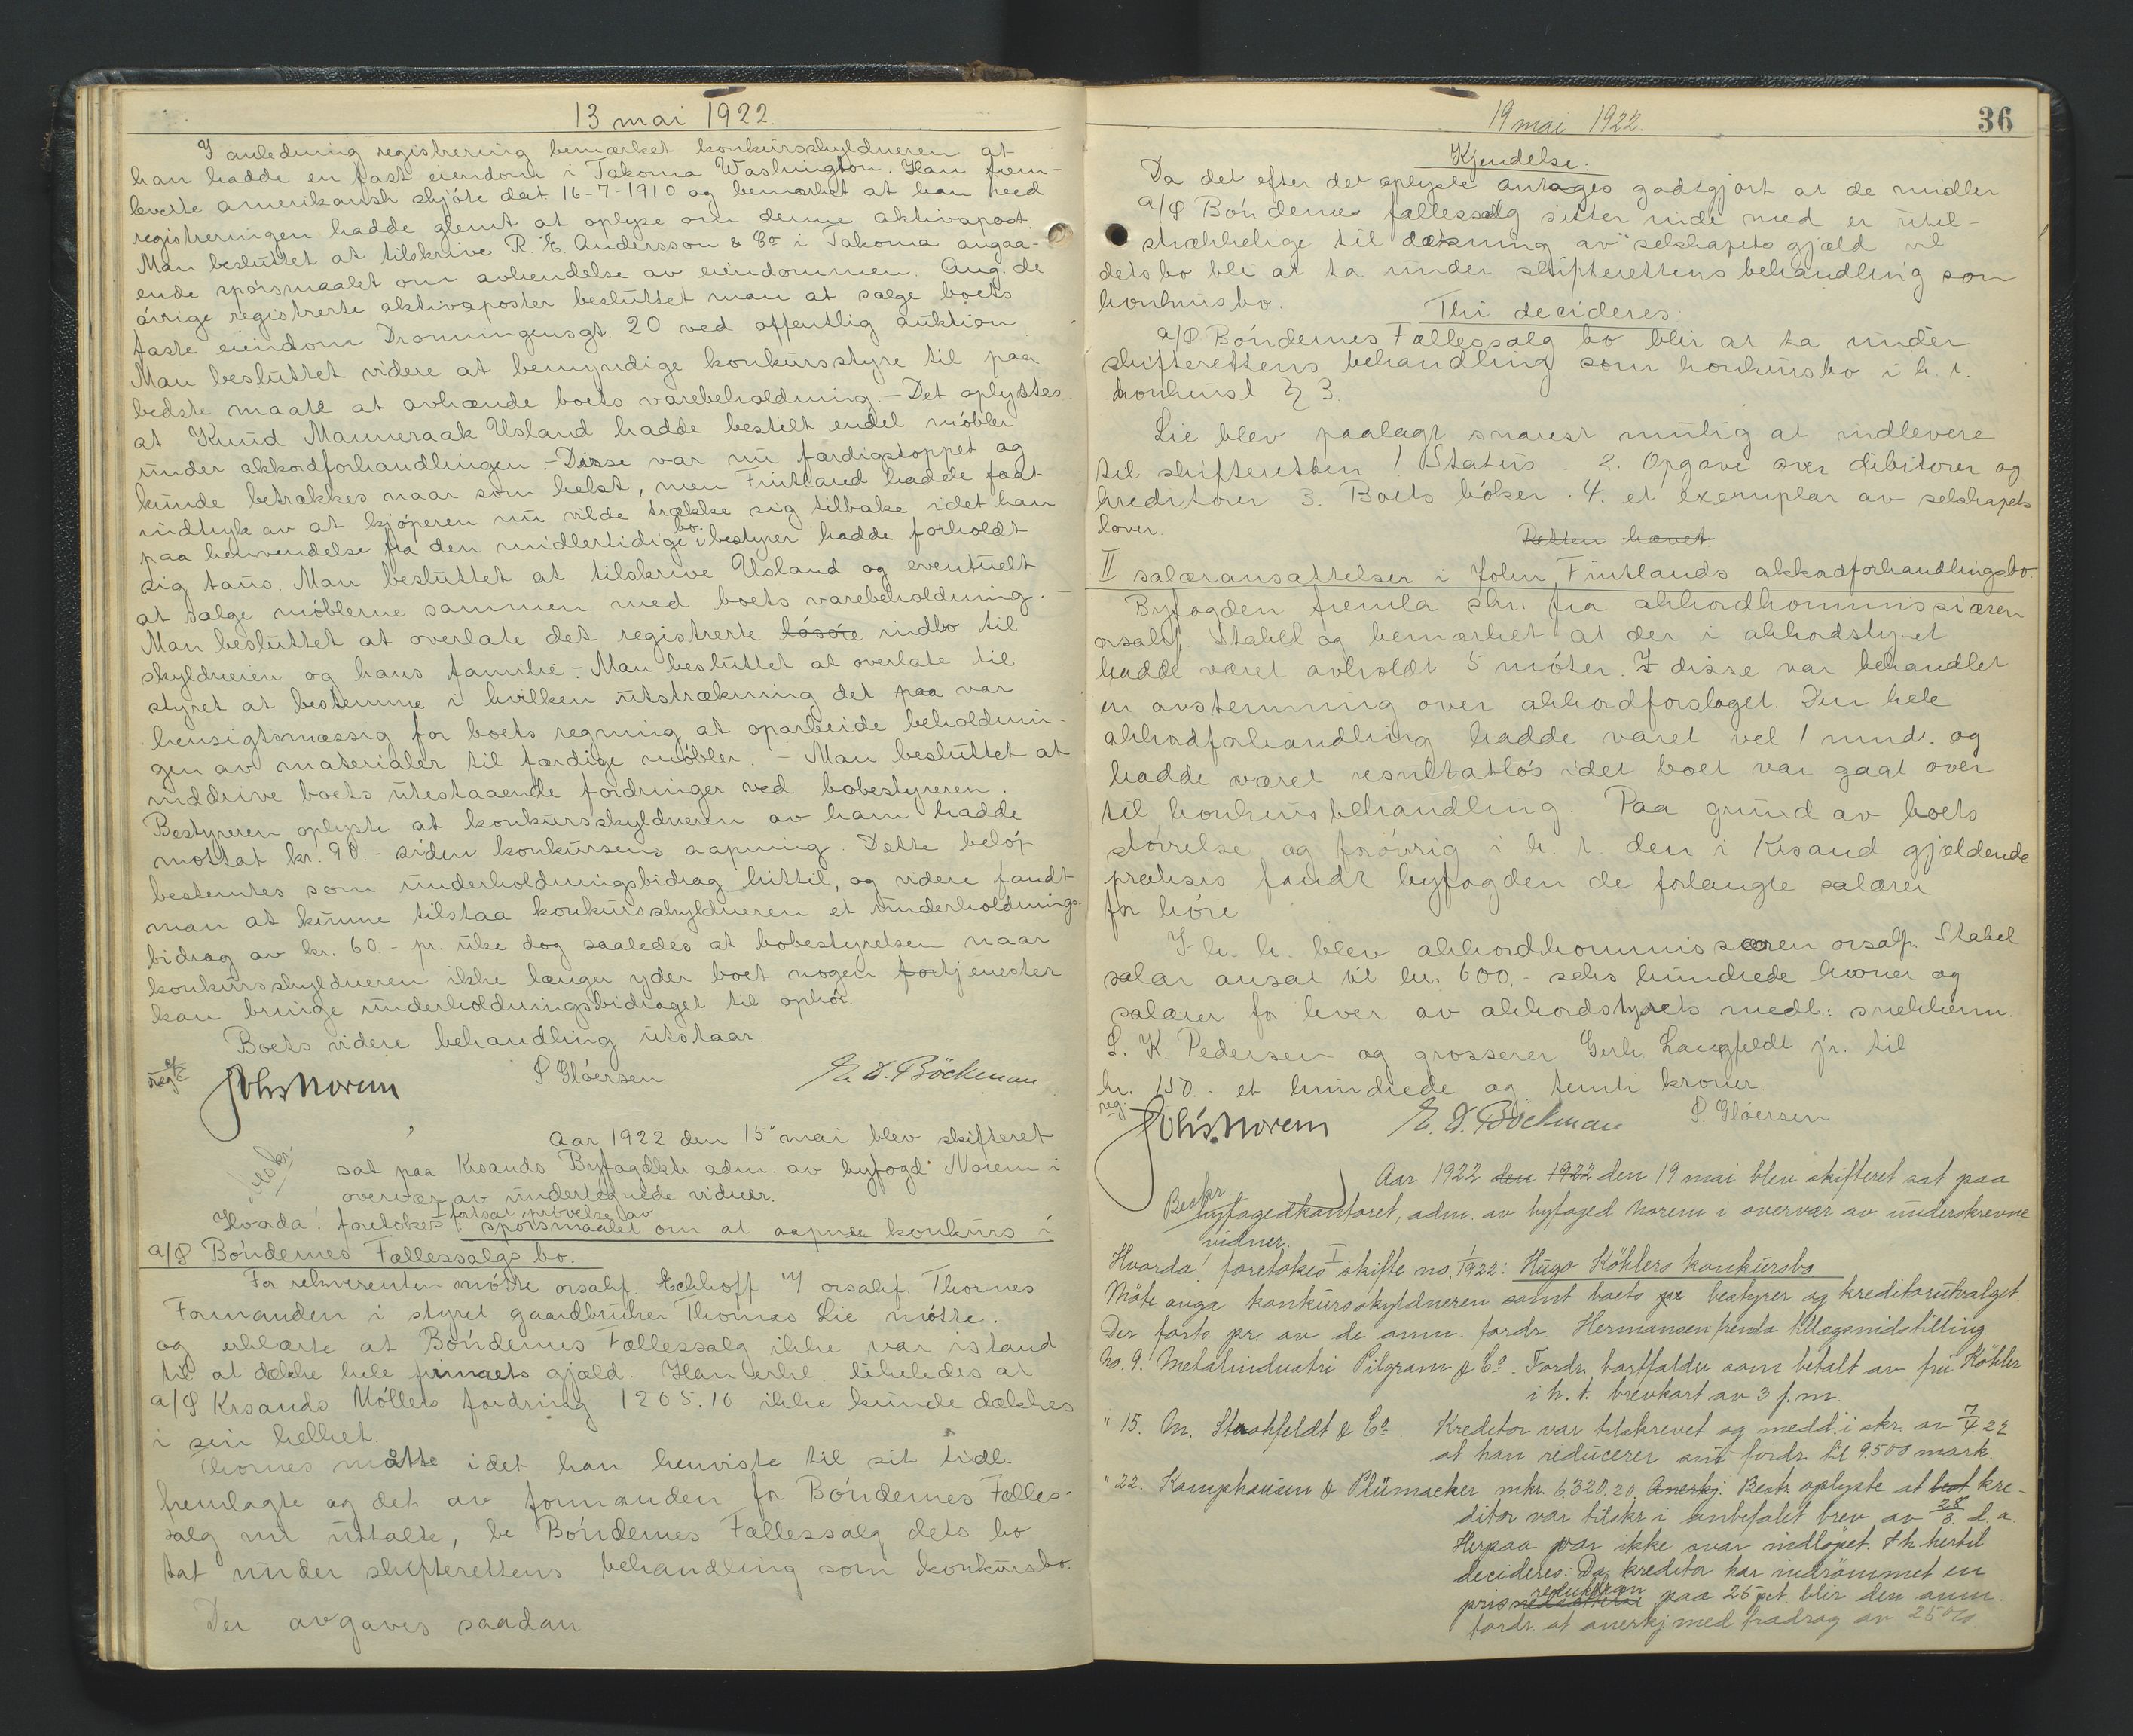 13 mai 1922.
I anledning registrering bemærket konkursskyldneren at
han hadde en fast eiendom i Takoma Washington. Han frem-
leverte amerikansk skjöte dat. 16-7-1910 og bemærket at han ved
registreringen hadde glemt at oplyse om denne aktivspost.
Man besluttet at tilskrive R. E. Andersson & Co i Takoma angaa-
ende spörsmaalet om avhendelse av eiendommen. Ang. de
övrige registrerte aktivsposter besluttet man at sælge boets
faste eiendom Dronningensgt. 20 ved offentlig auktion.
Man besluttet videre at bemyndige konkursstyre til paa
bedste maate at avhænde boets varebeholdning. - Det oplystes
at Knud Manneraak Usland hadde bestilt endel möbler
under akkordforhandlingen. - Disse var nu færdigstoppet og
kunde betrækkes naar som helst, men Fintland hadde faat
indtryk av at kjöperen nu vilde trække sig tilbake idet han
paa henvendelse fra den midlertidige bo-bestyrer hadde forholdt
sig taus. Man besluttet at tilskrive Usland og eventuelt
at sælge möblerne sammen med boets varebeholdning. -
Man besluttet at overlate det registrerte lösöre indbo til
skyldneren og hans familie. - Man besluttet at overlate til
styret at bestemme i hvilken utstrækning det paa var
hensigtsmæssig for boets regning at oparbeide beholdnin-
gen av materialer til færdige möbler. - Man besluttet at
inddrive boets utestaaende fordringer ved bobestyreren.
Bestyreren oplyste at konkursskyldneren av ham hadde
mottat kr. 90.- siden konkursens aapning. Dette belöp
bestemtes som underholdningsbidrag hittil, og videre fandt
man at kunne tilstaa konkursskyldneren et underholdnings-
bidrag av kr. 60.- pr. uke dog saaledes at bobestyrelsen naar
konkursskyldneren ikke længer yder boet nogen fortjenester
kan bringe underholdningsbidraget til ophör.
Boets videre behandling utstaar.
reg.
Johs Norem S. Glöersen E. D. Böckman
Aar 1922 den 15 mai blev skifteret
sat paa Krsands Byfogdktr. adm. av byfogd Norem i
overvær av undertegnede vidner.
beskr.
Hvorda! foretokes: I fortsat prövelse av spörsmaalet om at aapne konkurs i
a/S Böndernes Fællessalgs bo.
For rekvirenten mötte orsakf. Eckhoff v/ orsakf. Thornes
Formanden i styret gaardbruker Thomas Lie mötte.
og erklærte at Böndernes Fællessalg ikke var istand
til at dække hele firmaets gjæld. Han erkl. likeledes at
a/S Krsands Möllers fordring 1205.10 ikke kunde dækkes
i sin helhet.
Thornes mötte idet han henviste til sit tidl.
fremlagte og det av formanden for Böndernes Fælles-
salg nu uttalte, be Böndernes Fællessalg dets bo
tat under skifterettens behandling som konkursbo.
Der avgaves saadan
19 mai 1922.
36
Kjendelse:
Da det efter det oplyste antages godtgjort at de midler
a/S Böndernes fællessalg sitter inde med er util-
strækkelige til dækning av selskapets gjæld vil
dets bo bli at ta under skifterettens behandling som
konkursbo.
Thi decideres
a/S Böndernes Fællessalg bo blir at ta under
skifterettens behandling som konkursbo i h. t.
konkursl. § 3.
Lie blev paalagt snarest mulig at indlevere
til skifteretten 1 Status. 2. Opgave over debitorer og
kreditorer 3. Boets böker. 4. et exemplar av selskapets
lover.
Retten hævet
II salæransættelser i John Fintlands akkordforhandlingsbo.
Byfogden fremla skr. fra akkordkommissæren
orsakf. Stabel og bemærket at der i akkordstyret
hadde været avholdt 5 möter. I disse var behandlet
en avstemning over akkordforslaget. Den hele
akkordforhandling hadde varet vel 1 mnd. og
hadde været resultatlös idet boet var gaat over
til konkursbehandling. Paa grund av boets
störrelse og forövrig i h. t. den i Krsand gjældende
praksis fandt byfogden de forlangte salærer
for höie
I h. h. blev akkordkommissæren orsakf. Stabel
salær ansat til kr. 600.- seks hundrede kroner og
salærer for hver av akkordstyrets medl.: snekkerm.
S. K. Pedersen og grosserer Gerh Langfeldt jr. til
kr. 150.- et hundrede og femti kroner.
reg.
Johs. Norem E. D. Böckman S. Glöersen
Aar 1922 den 1922 den 19 mai blev skifteret sat paa
Beskr.
byfogedkontoret, adm. av byfoged Norem i overvær av underskrevne
vidner.
Hvorda! foretokes I skifte no. 1/1922: Hugo Köhlers konkursbo
Möte anga konkursskyldneren samt boets bestyrer og kreditorutvalget.
Der forts. pr. av de anm. fordr. Hermansen fremla tillægsindstilling.
No. 9. Metalindustri Pilgram & Co. Fordr. bortfalder som betalt av fru Köhler
i h. t. brevkort av 3 f.m.
" 15. M. Strohfeldt & Co Kreditor var tilskrevet og medd. i skr. av 7/4 22
at han reducerer sin fordr. til 9500 mark.
" 22. Kamphausen & Plümacher mkr. 6,320.20. Anerkj. Bestr. oplyste at best kre-
ditor var tilskr. i anbefalet brev av 28/3 d. a.
Herpaa var ikke svar indlöpet. I h. hertil
decideres: Da kreditor har indrömmet en
prisreduktion paa 25 pct. blir den anm.
fordr. at anerkj med fradrag av 25%